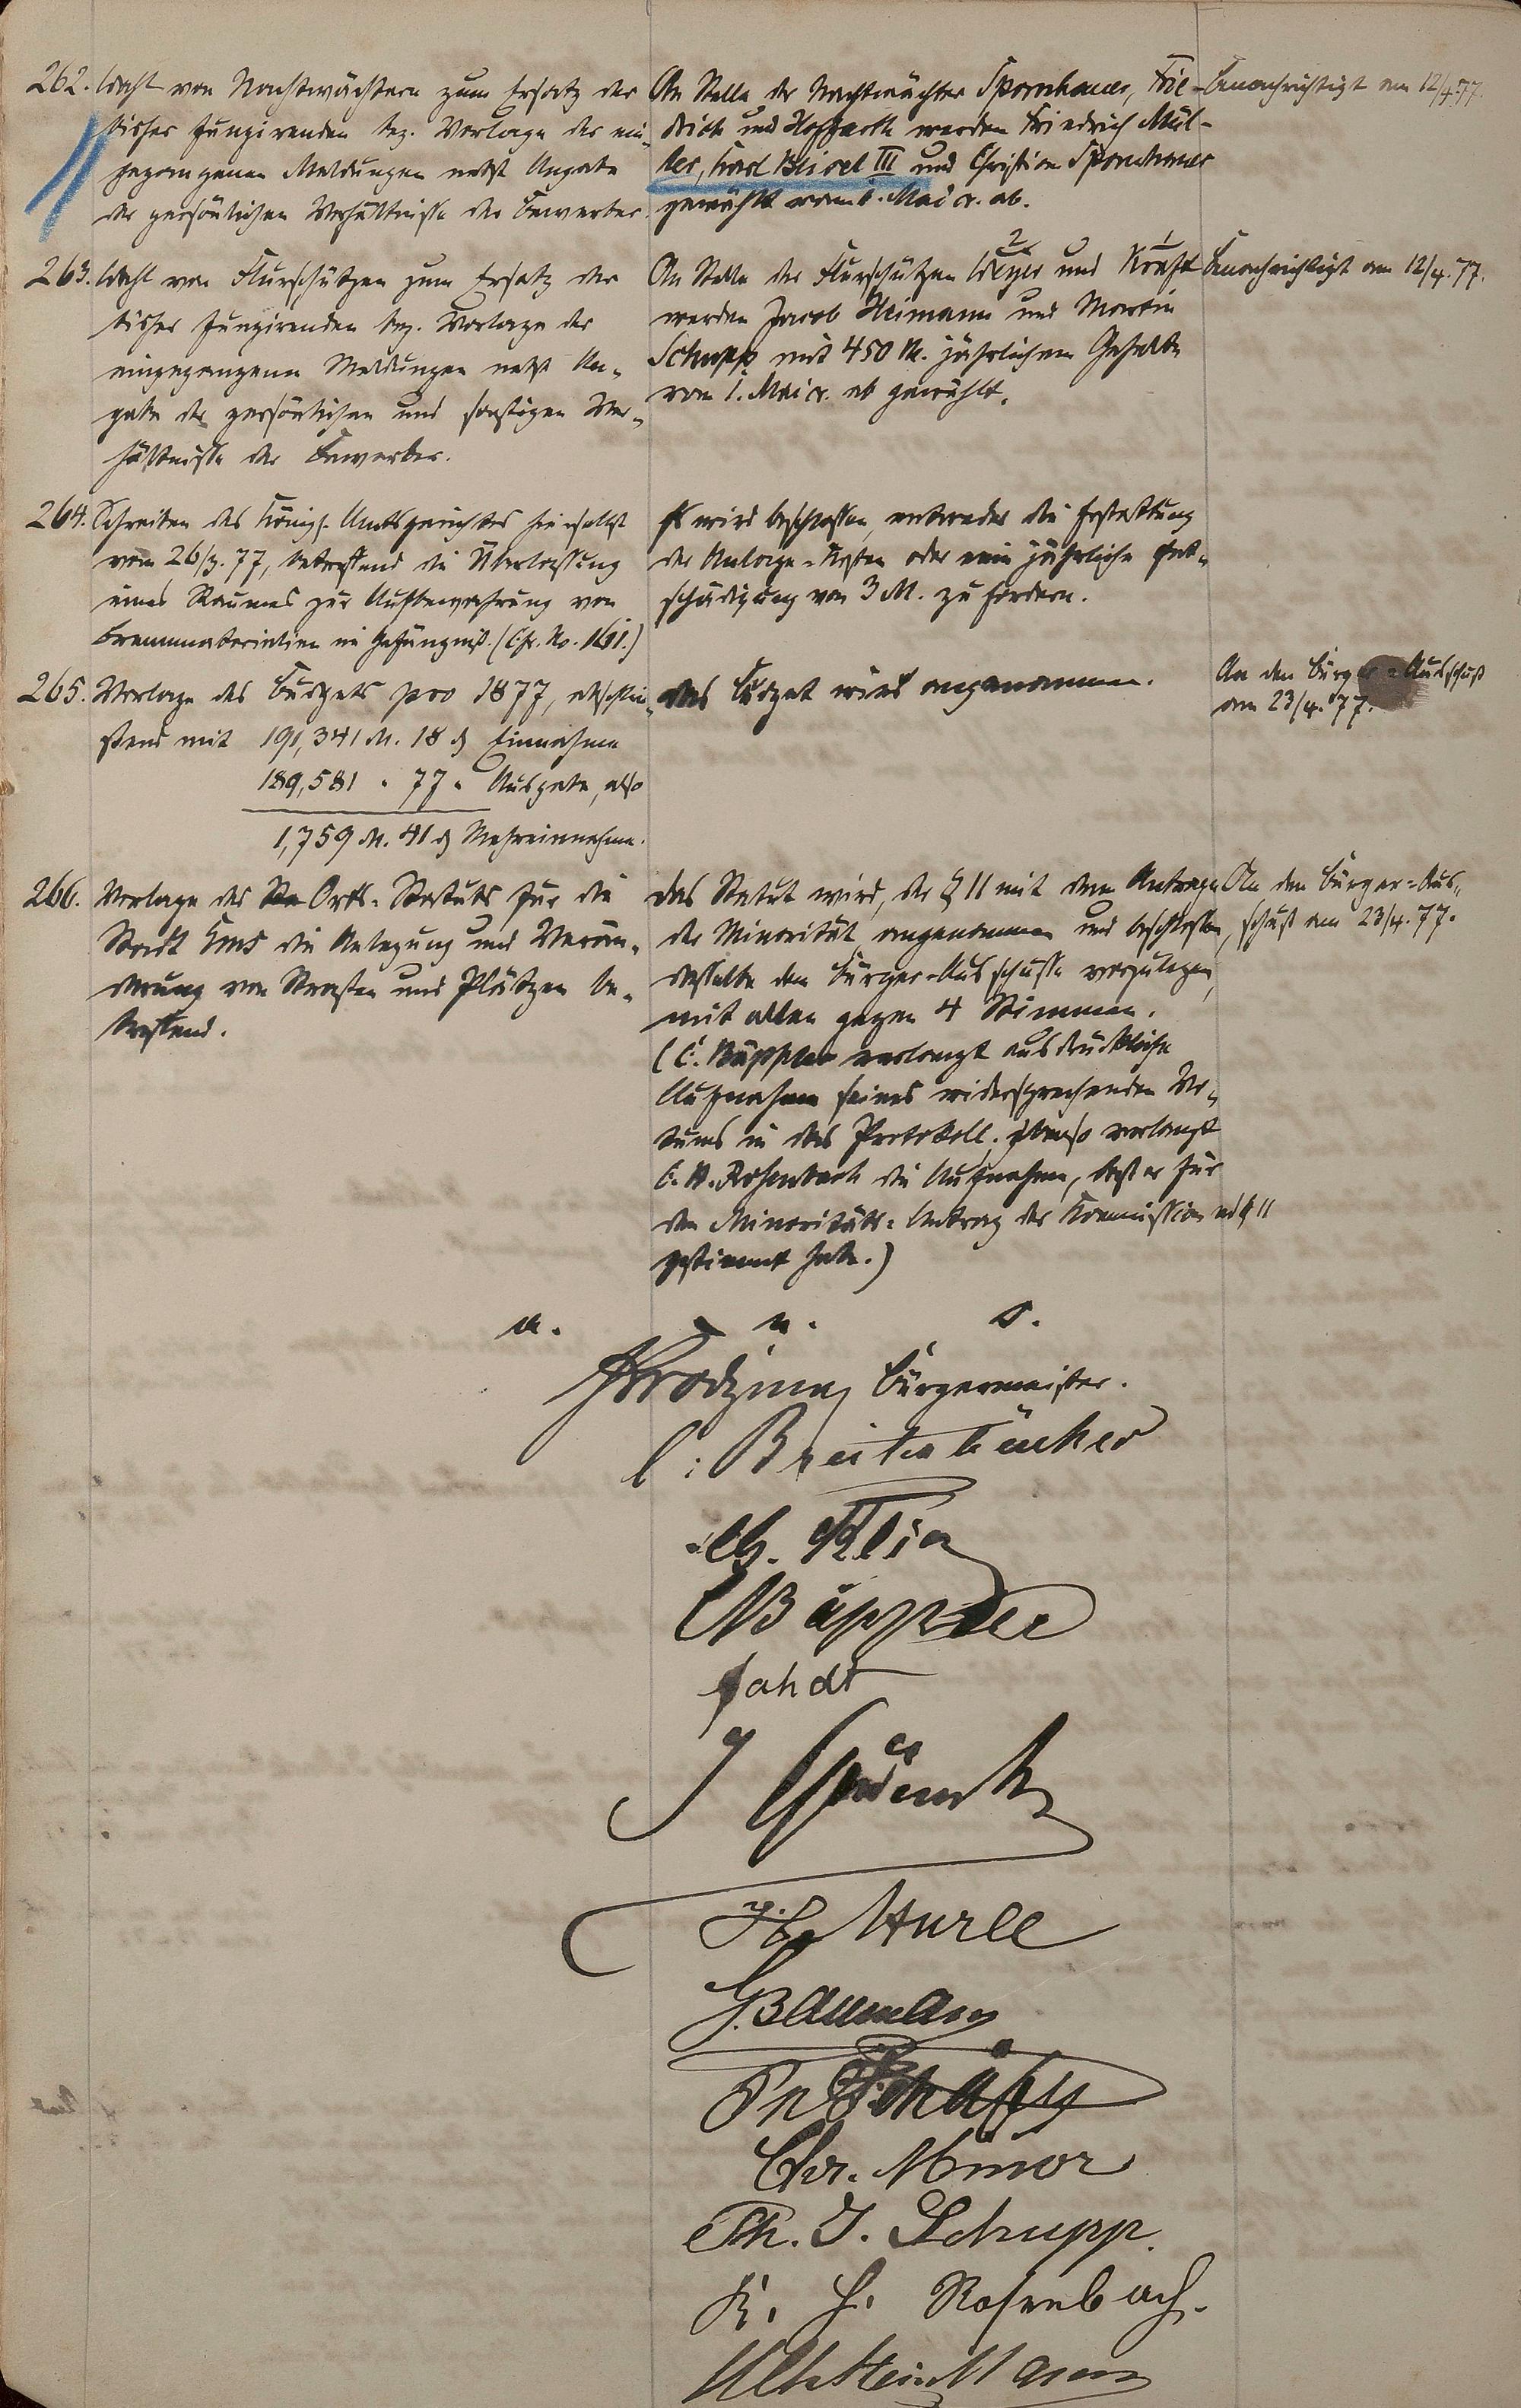 262. Wahl von Nachtwächtern zum Ersatz der
bisher fungirenden bez. Vorlage der ein-
gegangenen Meldungen nebst Angabe
der persönlichen Verhältnisse der Bewerber.
An Stelle der Nachtwächter Spornhauer, Frie-
drich und Hoffarth werden Friedrich Mül-
ler, Karl Beisel III und Christian Spornhauer
gewählt vom 1. Mai cr. ab.
Benachrichtigt am 12/4. 77.
263. Wahl von Flurschützen zum Ersatz der
bisher fungirenden bez. Vorlage der
eingegangenen Meldungen nebst An-
gabe der persönlichen und sonstigen Ver-
hältnisse der Bewerber.
2 1
An Stelle der Flurschützen Weyer und Kraft
werden Jacob Heimann und Martin
Schupp mit 450 M. jährlichem Gehalte
vom 1. Mai cr. ab gewählt.
Benachrichtigt am 12/4. 77.
264. Schreiben des Königl. Amtsgerichtes hierselbst
vom 26/3. 77, betreffend die Überlassung
eines Raumes zur Aufbewahrung von
Brennmaterialien im Gefängniß. (Cfr. No. 161.)
Es wird beschlossen, entweder die Erstattung
der Anlage-Kosten oder eine jährliche Ent-
schädigung von 3 M. zu fordern.
265. Vorlage des Budgets pro 1877, abschlie-
ßend mit 191,341 M. 18 ₰ Einnahme
189,581 " 77 " Ausgabe, also
1,759 M. 41 ₰ Mehreinnahme.
Das Budget wird angenommen.
An den Bürger-Ausschuß
am 23/4. 77.
266. Vorlage des Orts-Statuts für die
Stadt Ems die Anlegung und Verän-
derung von Straßen und Plätzen be-
treffend.
Das Statut wird, der § 11 mit dem Antrage
der Minorität angenommen und beschlossen,
dasselbe dem Bürger-Ausschusse vorzulegen,
mit allen gegen 4 Stimmen.
(C. Bäppler verlangt ausdrückliche
Aufnahme seines widersprechenden Vo-
tums in das Protokoll. Ebenso verlangt
C. H. Rosenbach die Aufnahme, daß er für
den Minoritäts-Antrag der Kommission ad § 11
gestimmt habe.)
An den Bürger-Aus-
schuß am 23/4. 77.
a. u. s.
Bürgermeister.
C: Breitenbücher
Bäppler
J. Baumann
Chr. Minor
Ph. J. Schupp.
K. H. Rosenbach.